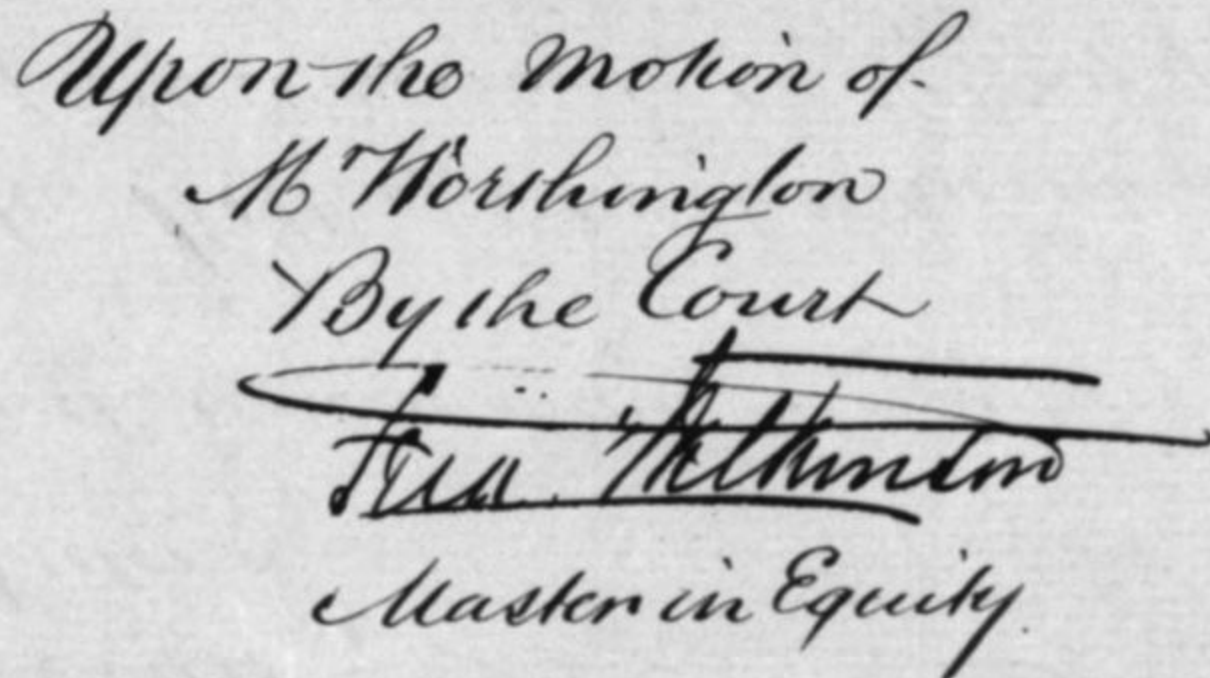 Upon the motion of
Mr Worthington
By the Court
Master in Equity